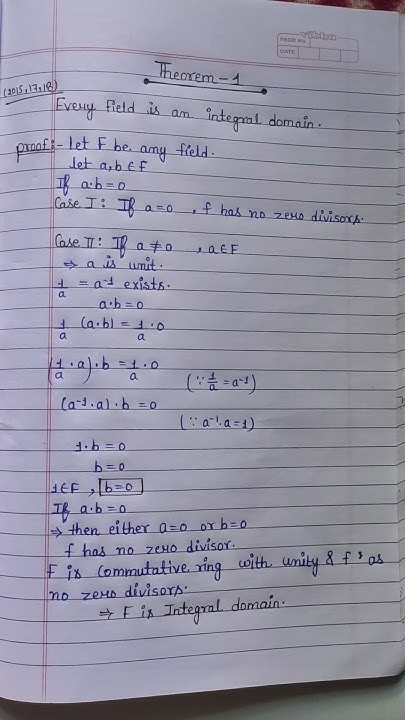 vibbu
PAGE No.
DATE
Theorem-1
(2015,17,18)
Every field is an integral domain.
proof:- let F be any field.
let a,b ∈ F
If a·b=0
Case I: If a=0 , f has no zero divisors.
Case II: If a ≠ 0 , a∈F
⇒ a is unit.
1/a = a⁻¹ exists.
a·b=0
1/a (a·b) = 1/a ·0
(1/a ·a)·b = 1/a ·0
(∵ 1/a = a⁻¹)
(a⁻¹·a)·b =0
(∵ a⁻¹·a=1)
1·b =0
b=0
1∈F , b=0
If a·b=0
⇒ then either a=0 or b=0
f has no zero divisor.
F is commutative ring with unity & f 's as
no zero divisors.
⇒ F is Integral domain.